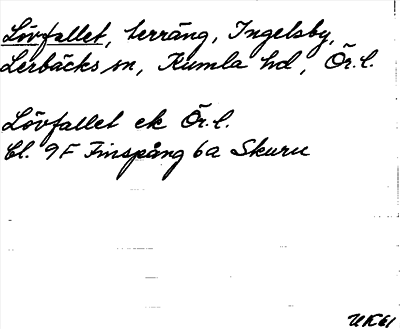 Lövfallet, terräng, Ingelsby,
Lerbäcks sn, Kumla hd, Ör. l.
Lövfallet ek Ör. l.
Bl. 9F Finspång 6a Skuru
UK61